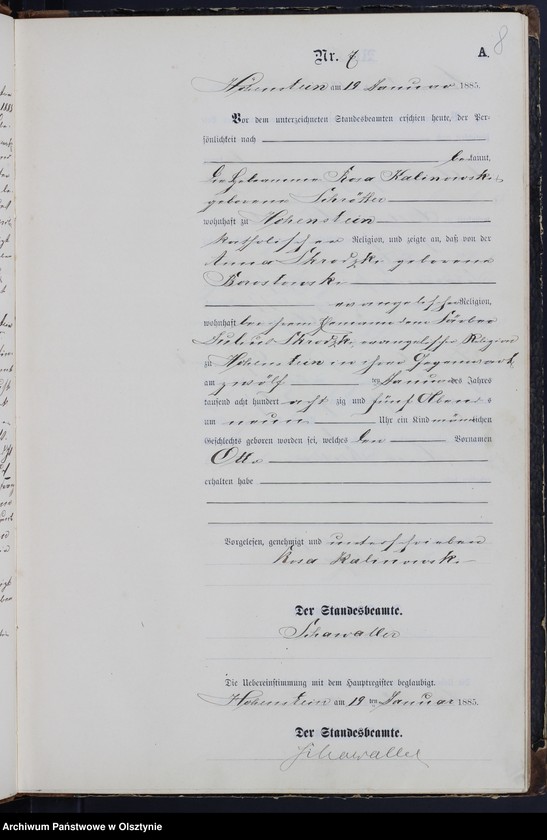 8
A.
Nr. 7
Hohenstein am 19 Januar 1885.
Vor dem unterzeichneten Standesbeamten erschien heute, der Per-
sönlichkeit nach
bekannt,
die Hebamme Rosa Kalinowski
geborene Schröter
wohnhaft zu Hohenstein
katholischer Religion, und zeigte an, daß von der
Anna Skrodzki geborene
Borostowski
evangelischer Religion,
wohnhaft bei ihrem Ehemann dem Färber
Julius Skrodzki, evangelischer Religion
zu Hohenstein in ihrer Gegenwart
am zwölften Januar des Jahres
tausend acht hundert acht zig und fünf Abends
um neun Uhr ein Kind männlichen
Geschlechts geboren worden sei, welches den Vornamen
Otto
erhalten habe
Vorgelesen, genehmigt und unterschrieben
Rosa Kalinowski
Der Standesbeamte.
Schawaller
Die Uebereinstimmung mit dem Hauptregister beglaubigt.
Hohenstein am 19 ten Januar 1885.
Der Standesbeamte.
Schawaller
Archiwum Państwowe w Olsztynie